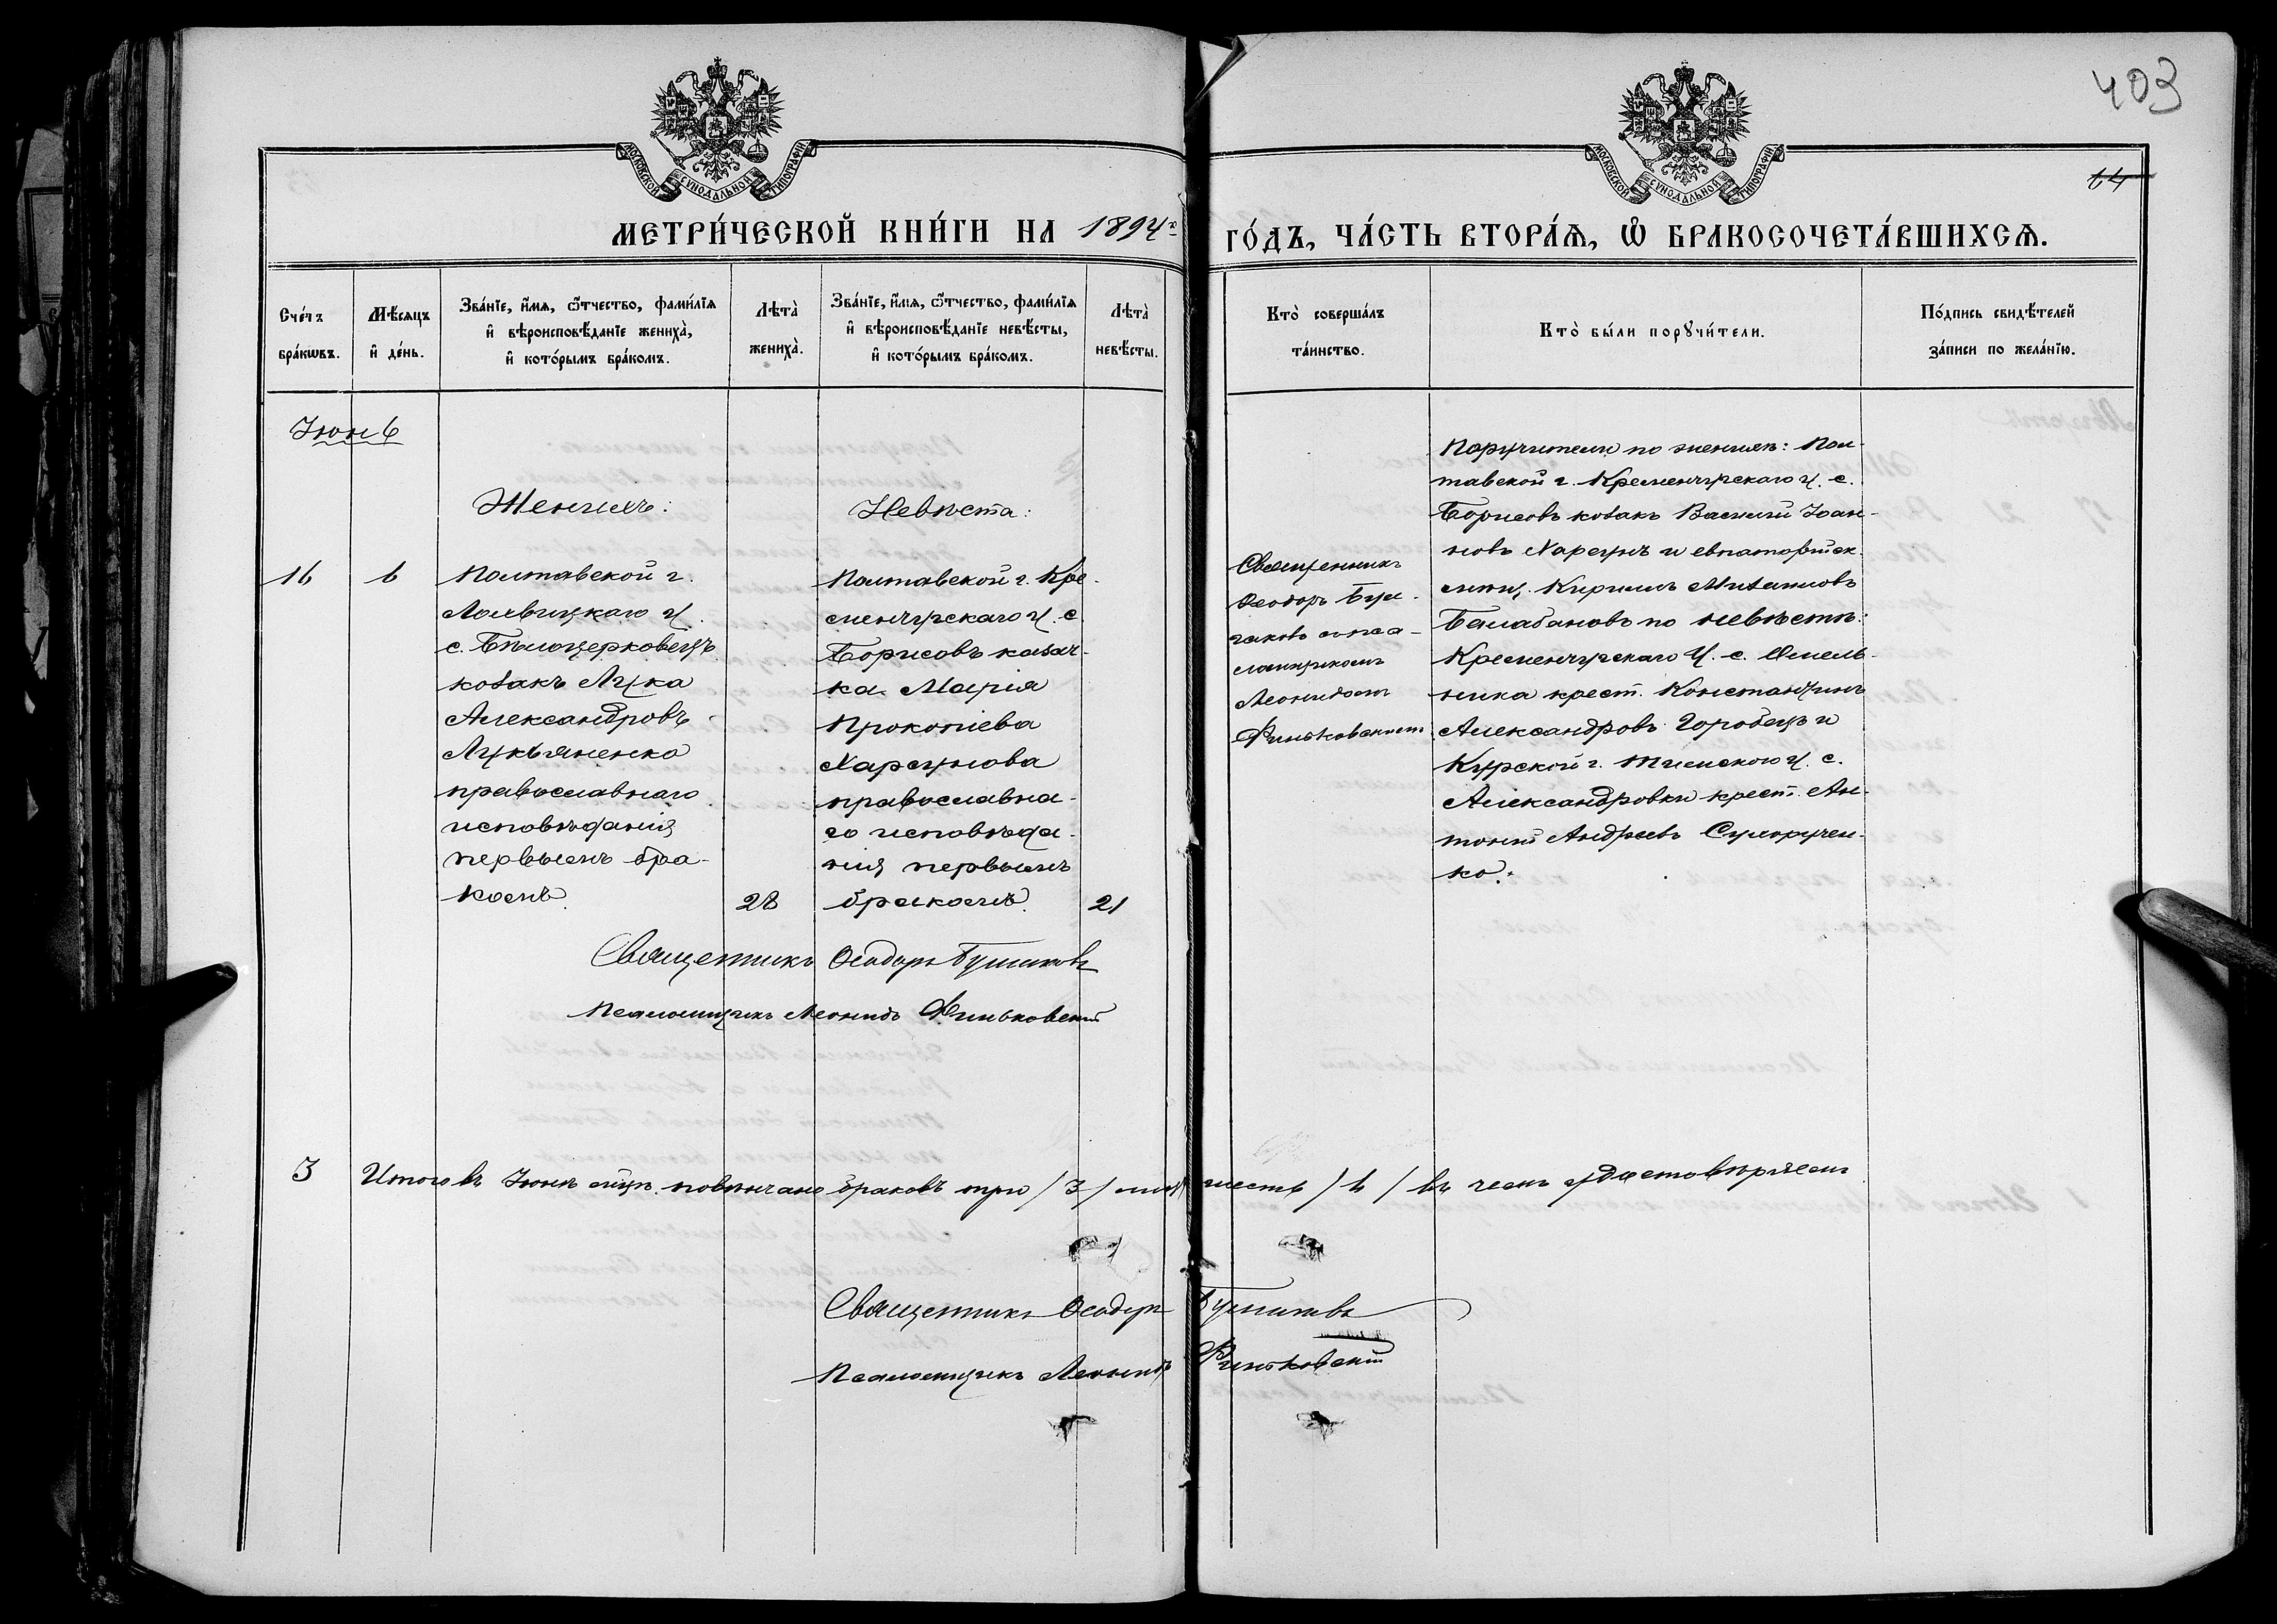 403
14
МОСКОВСКОЙ СУНОДАЛЬНОЙ ТИПОГРАФІИ
МОСКОВСКОЙ СУНОДАЛЬНОЙ ТИПОГРАФІИ
МЕТРИ́ЧЕСКОЙ КНИ́ГИ НА 1894 г
ГО́ДЪ, ЧА́СТЬ ВТОРА́Ѧ, Ѽ БРАКОСОЧЕТА́ВШИХСѦ.
Сче́тъ
бра́кѡвъ.
Мѣ́сяцъ
и҆ де́нь.
Зва́нїе, и҆́мѧ, ѻ҆́тчество, фами́лїѧ
и҆ вѣроисповѣ́данїе жениха̀,
и҆ кото́рымъ бра́комъ.
Лѣта̀
жениха̀.
Зва́нїе, и҆́мѧ, ѻ҆́тчество, фами́лїѧ
и҆ вѣроисповѣ́данїе невѣ́сты,
и҆ кото́рымъ бра́комъ.
Лѣта̀
невѣ́сты.
Кто̀ соверша́лъ
та́инство.
Кто̀ бы́ли порꙋчи́тели.
По́дпись свидѣ́телей
за́писи по жела́нїю.
Іюнь
Женихъ:
16
6
Полтавской г.
Лохвицкаго у.
с. Бѣлоцерковецъ
козакъ Лука
Александровъ
Лукьяненко
православнаго
исповѣданія
первымъ бра-
комъ.
28
Невѣста:
Полтавской г. Кре-
менчугскаго у. с.
Борисовъ казач-
ка Марія
Прокопіева
Харсунова
православна-
го исповѣда-
нія первымъ
бракомъ.
21
Священникъ
Ѳеодоръ
съ пса-
ломщикомъ
Леонидомъ
Финьковскимъ
Поручители по женихѣ: Пол-
тавской г. Кременчугскаго у. с.
Борисовъ козакъ Василій Іоан-
новъ Харсунъ и евпаторійск.
мѣщ. Кириллъ Михаиловъ
Балабановъ по невѣстѣ:
Кременчугскаго у. с. Омель-
ника крест. Константинъ
Александровъ Горобецъ и
Курской г. Тимскаго у. с.
Александровки крест. Ан-
тоній Андреевъ Сухоручен-
ко.
Священникъ Ѳеодоръ
Псаломщикъ Леонидъ Финьковскій
3
Итого въ Іюнѣ мѣц. повѣнчано браковъ три /3/ лицъ шесть /6/ въ чемъ удостовѣряемъ
Священникъ Ѳеодоръ
Псаломщикъ Леонидъ Финьковскій